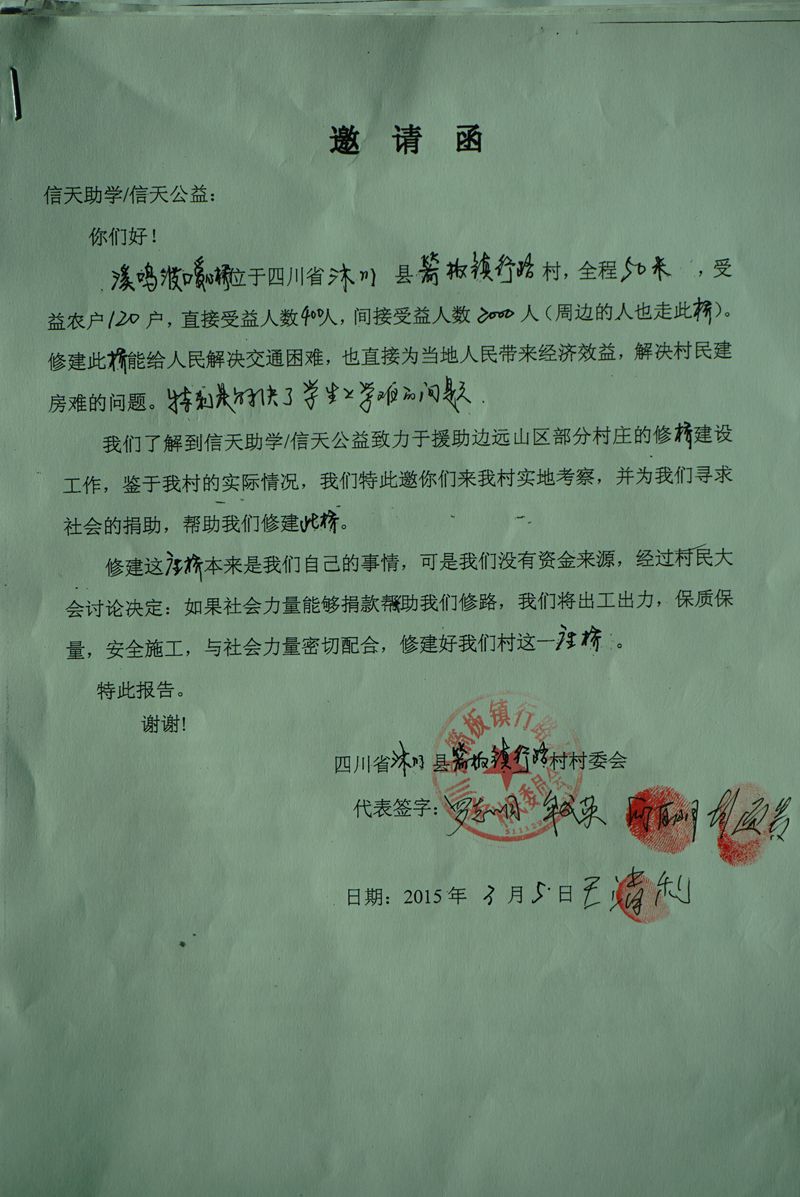 邀请函
信天助学/信天公益：
你们好！
溪鸣 位于四川省沐川县箭板镇行路村，全程50米，受
益农户120户，直接受益人数400人，间接受益人数2000人（周边的人也走此桥）。
修建此桥能给人民解决交通困难，也直接为当地人民带来经济效益，解决村民建
房难的问题。特别是解决了学生上学难的问题.
我们了解到信天助学/信天公益致力于援助边远山区部分村庄的修桥建设
工作，鉴于我村的实际情况，我们特此邀你们来我村实地考察，并为我们寻求
社会的捐助，帮助我们修建此桥。
修建这座桥本来是我们自己的事情，可是我们没有资金来源，经过村民大
会讨论决定：如果社会力量能够捐款帮助我们修路，我们将出工出力，保质保
量，安全施工，与社会力量密切配合，修建好我们村这一座桥。
特此报告。
谢谢!
四川省沐川县箭板镇行路村村委会
代表签字：
日期：2015年3月5日